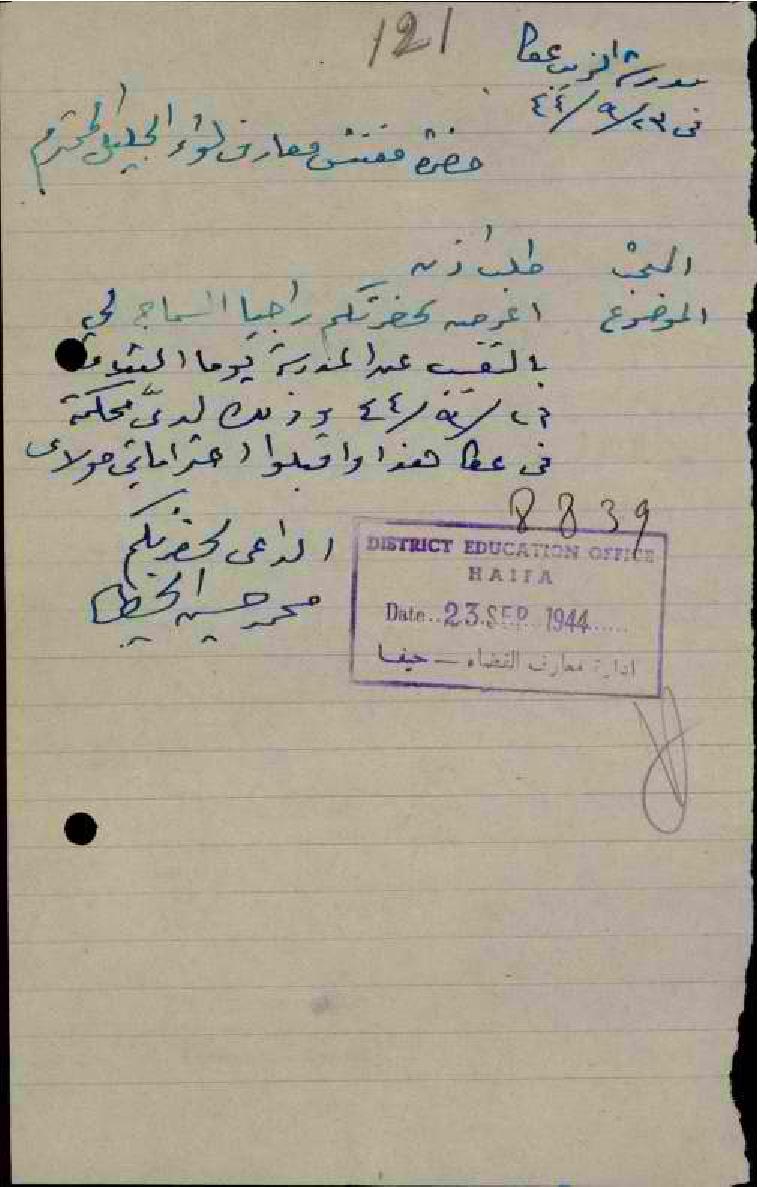 121
مدرسة الزيب عكا
في ٢٣/٩/٤٤
حضرة مفتش معارف لواء الجليل المحترم
المبحث طلب اذن
الموضوع اعرض لحضرتكم راجيا السماح لي
بالتغيب عن المدرسة يوم الثلاثاء
في /٩/٤٤ وذلك لدى محكمة
في عكا هذا واقبلوا احتراماتي مولاي
8839
الداعي لحضرتكم
محمد حسين الخطيب
DISTRICT EDUCATION OFFICE
HAIFA
Date..23.SEP.1944......
ادارة معارف القضاء — حيفا